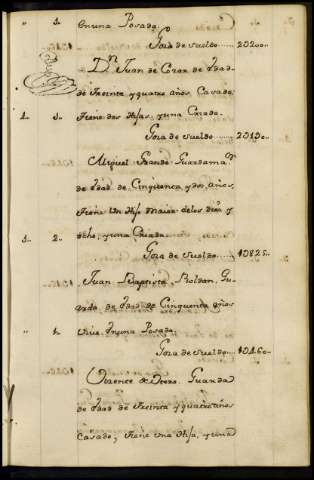 " 1. en una Posada.
Goza de sueldo ..... 2D200..
Dn. Juan de de Edad
de treinta y quatro años, Casado
1. 3. tiene dos Hijas, y una Criada.
Goza de sueldo ..... 2D190..
Miguel Grande Guardamar.
de Edad de Cinquenta y dos, años,
tiene un Hijo maior de los diez y
ocho, y una Criada.
3. 2. Goza de sueldo ..... 1D825..
Juan Baptista Roldan, Gu
arda de Edad de Cinquenta años
" 1. Vive en una Posada.
Goza de sueldo ..... 1D460..
Vicente Guarda
de Edad de treinta y quatro años
Casado, tiene una Hija, y una